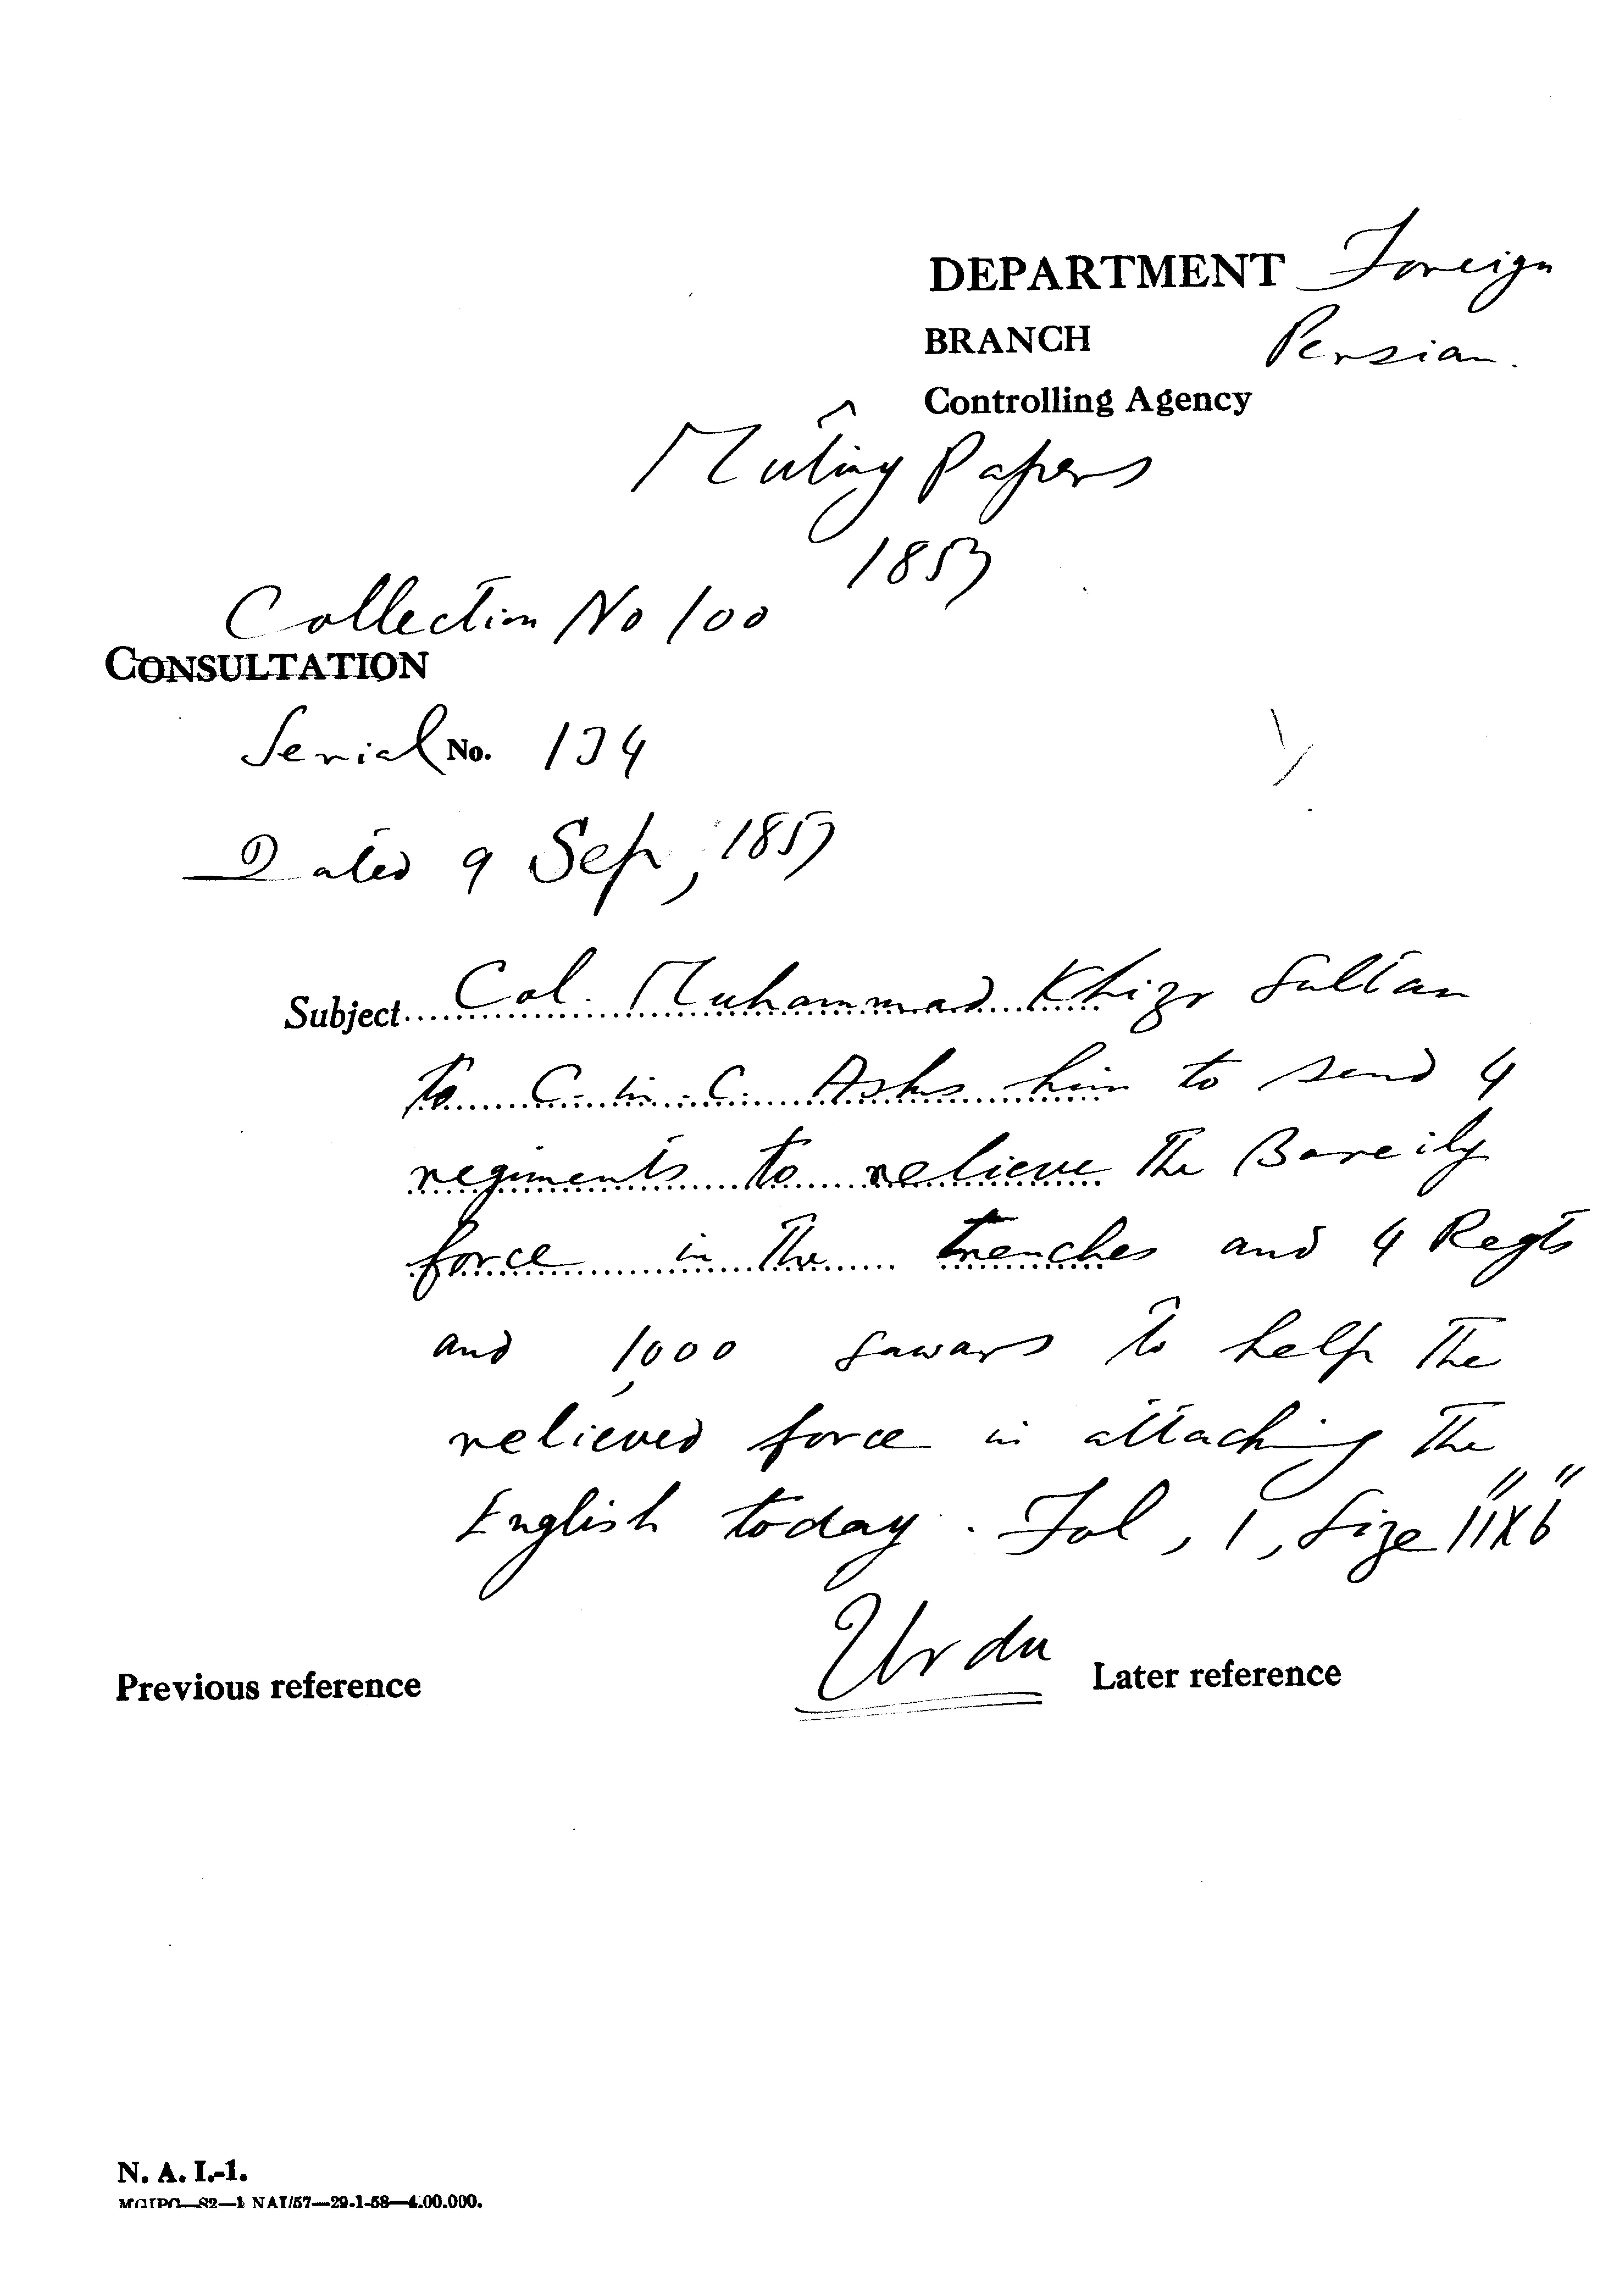 DEPARTMENT Foreign
BRANCH Persian.
Controlling Agency
Mutiny Papers
1857
Collection No 100
CONSULTATION
Serial No. 134
Dated 9 Sep, 1857
Subject Col. Muhammad Khizr Sultan
to C-in-C. Asks him to send 4
regiments to relieve the Bareily
force in the trenches and 4 Regts
and 1,000 sawars to help the
relieved force in attacking the
English today. Fol, 1, Size 11"X6"
Urdu
Previous reference Later reference
N. A. I.-1.
MGIPO—S2—1 NAI/57—29-1-58—4.00.000.